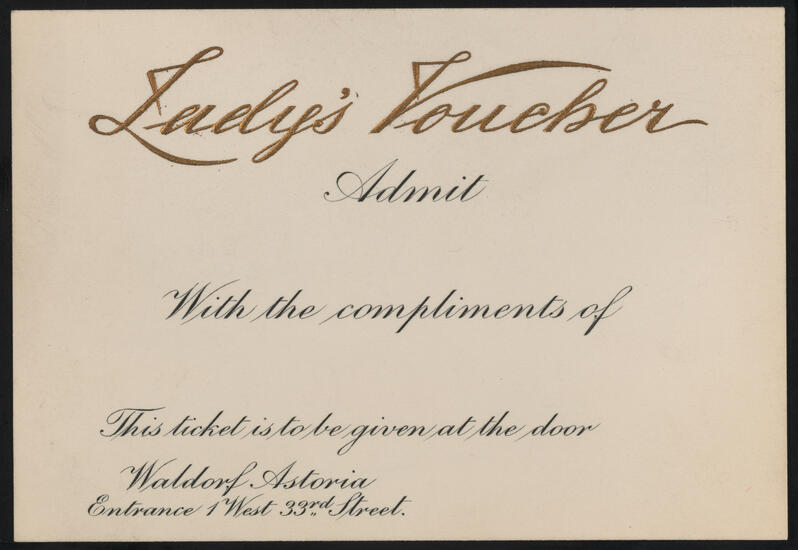 Lady's Voucher
Admit
With the compliments of
This ticket is to be given at the door
Waldorf Astoria
Entrance 1 West 33rd Street.